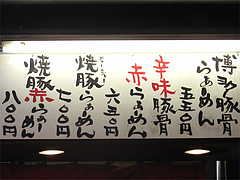 博多豚骨
らぁめん
五五〇円
辛味豚骨
赤らぁめん
六五〇円
焼豚らぁめん
七〇〇円
焼豚赤らぁめん
八〇〇円